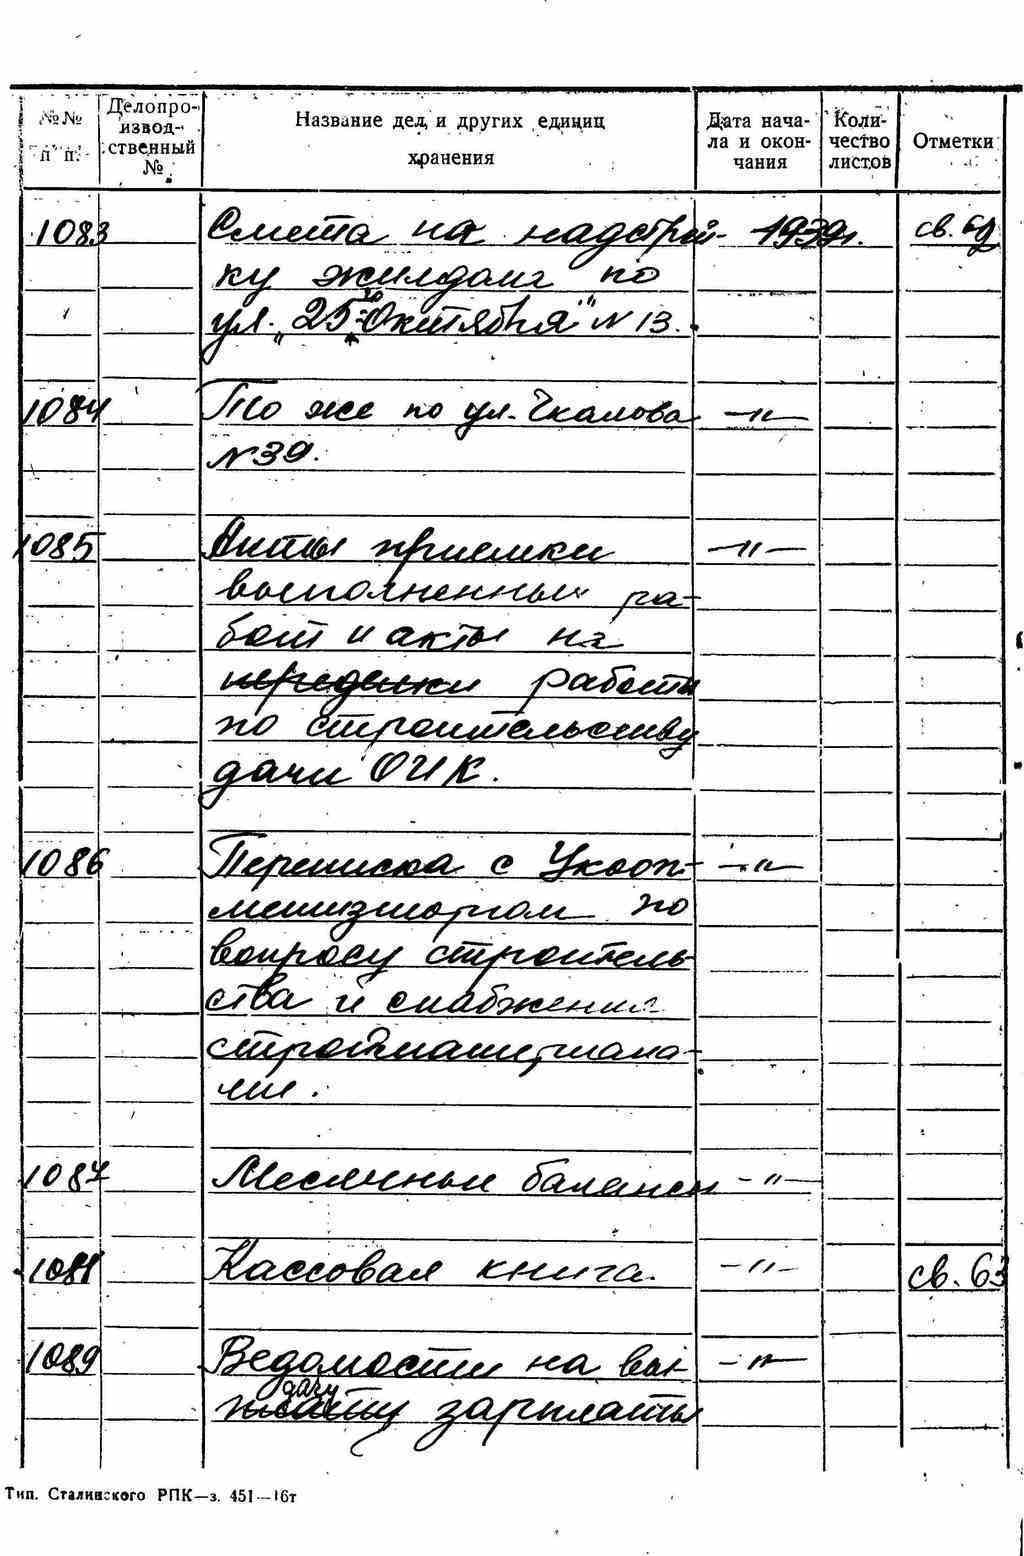 №№ п п. Делопро-извод-ственный № Название дел, и других единиц хранения Дата нача-ла и окон-чания Коли-чество листов Отметки
1083 Смета на надстрой- 1939г. св. 62
ку жилдома по
ул. "25го Октября" N 13.
1084 То же по ул. Чкалова —"—
N 39.
1085 Акты приемки —"—
выполненных ра-
бот и акты на
переделки работы
по строительству
дачи ОИК.
1086 Переписка с —"—
по
вопросу строитель-
ства и снабжения
стройматериала-
ми.
1087 Месячные балансы —"—
1088 Кассовая книга. —"— св. 63
1089 Ведомости на вы- —"—
дачу
плату зарплаты
Тип. Сталинского РПК—з. 451—16т